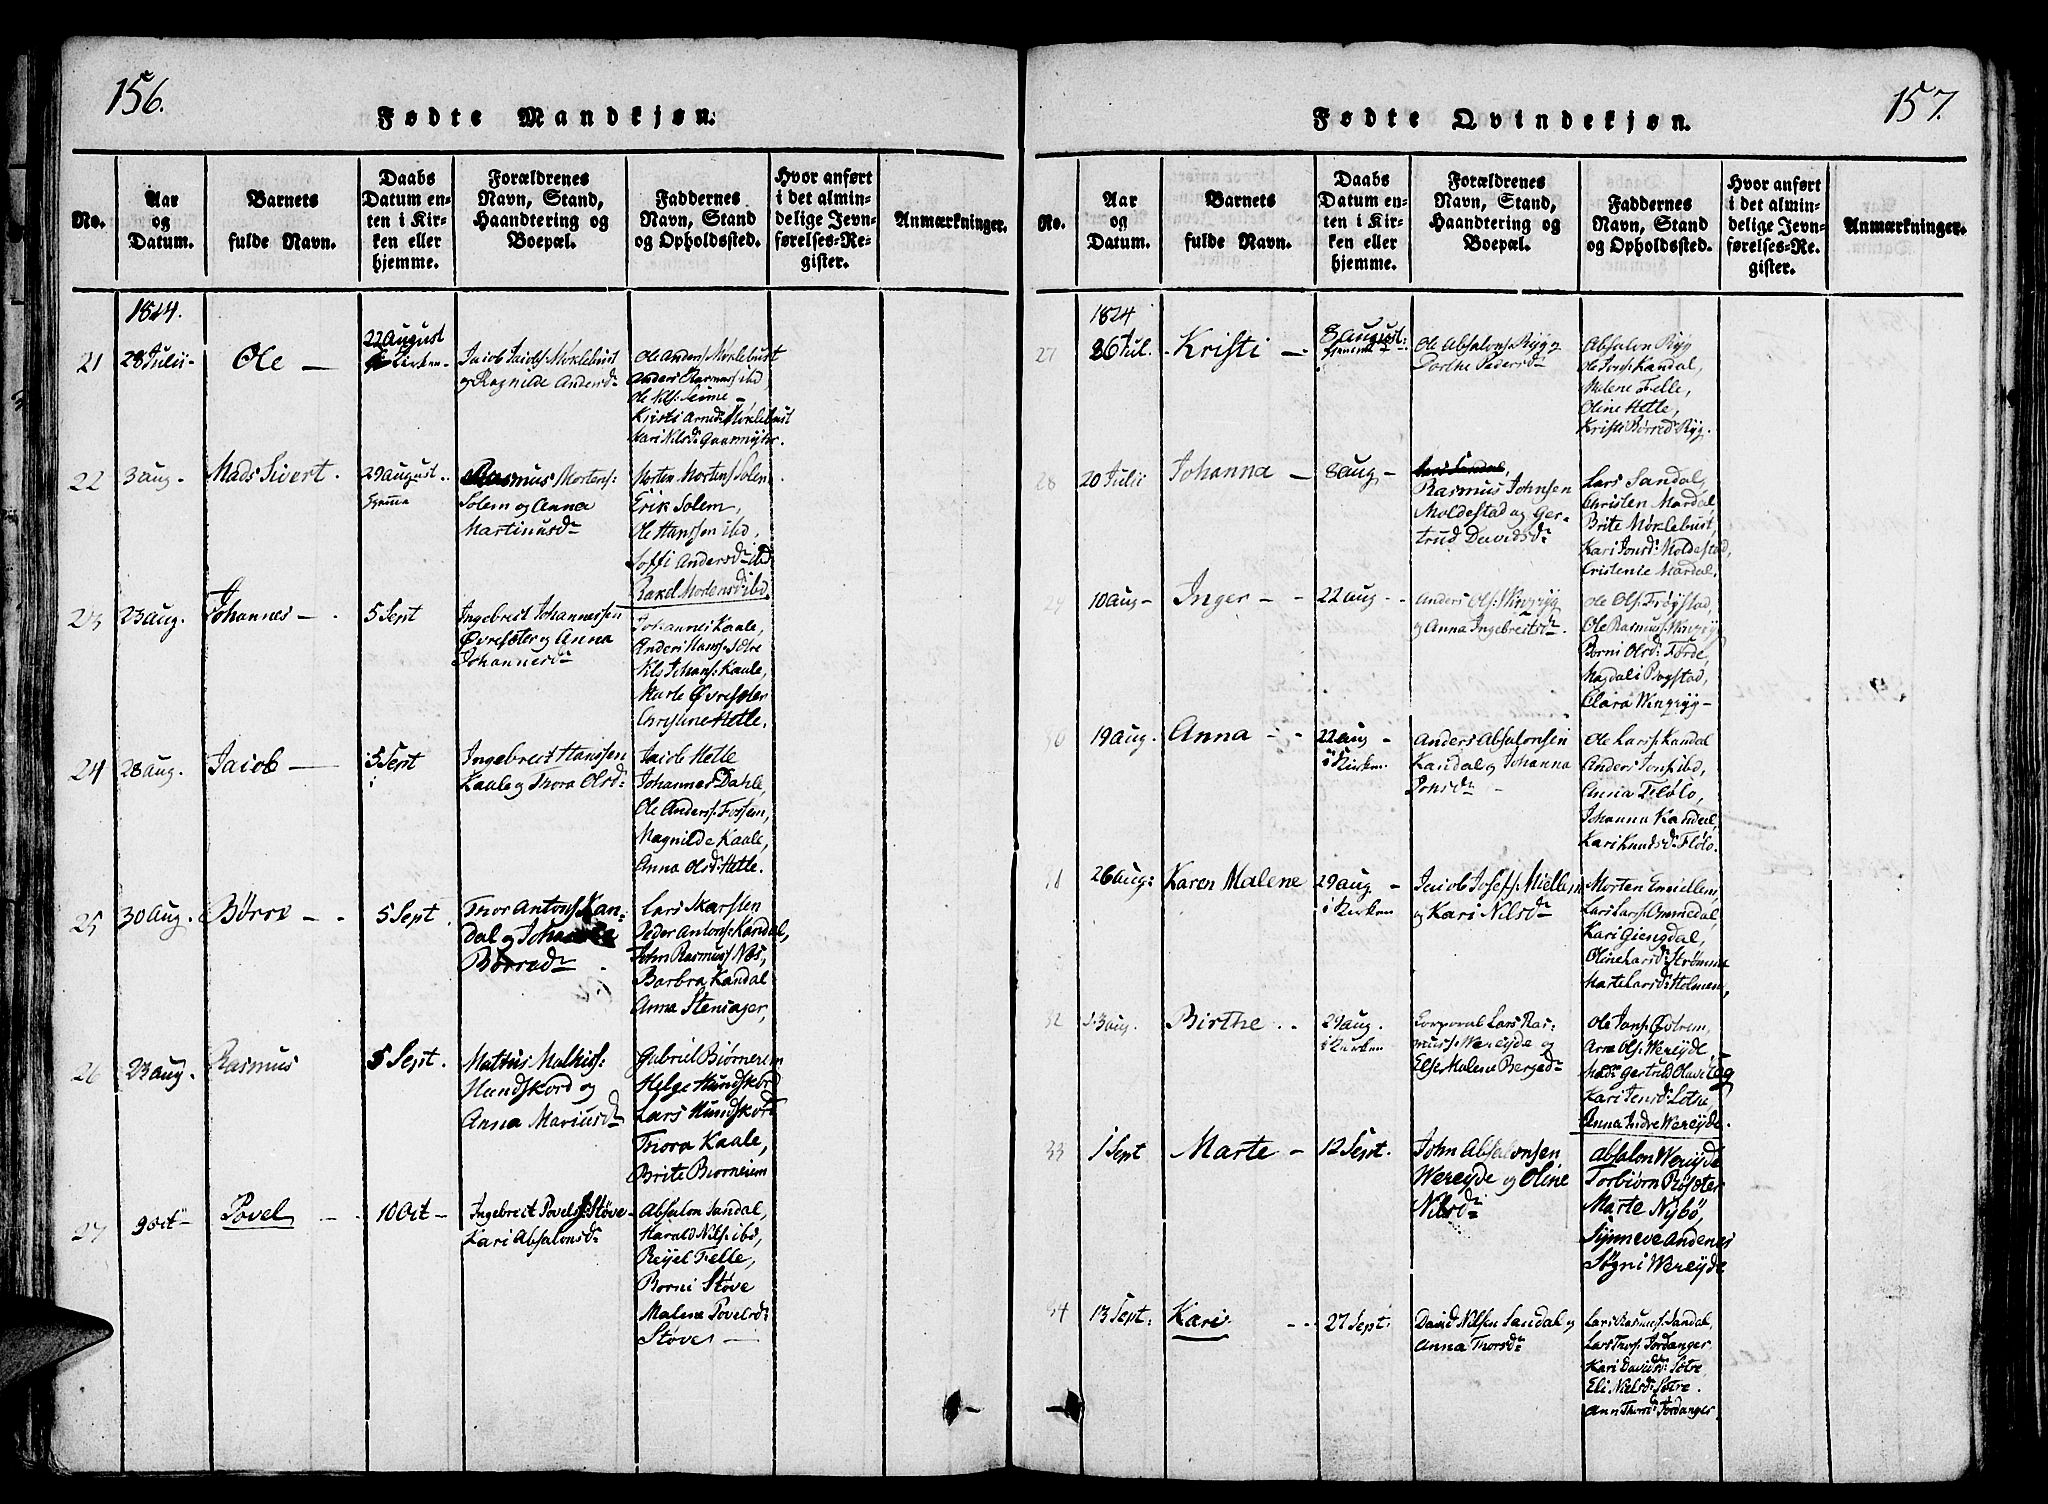 156.
Fødte Mandkjøn.
No.
Aar
og
Datum.
Barnets
fulde Navn.
Daabs
Datum en-
ten i Kir-
ken eller
hjemme.
Forældrenes
Navn, Stand,
Haandtering og
Boepæl.
Faddernes
Navn, Stand
og Opholdssted.
Hvor anført
i det almin-
delige Jevn-
førelses-Re-
gister.
Anmærkninger.
1824.
21
28 Julii
Ole
22 August
i Kirken
Jacob Jacobs: Møklebust
og Ragnilde Andersdr
Ole Anders: Møklebust
Anders Rasmuss: ibd
Ole Nils: Seime
Kirsti Arnedr Møklebust
Kari Nilsdr
22
3 aug
Mads Sivert.
29 august
Hjemme
Rasmus Mortens:
Solem og Anna
Martinusdr
Morten Mortens: Solem
Erik Solem,
Ole Hanssen ibd,
Soffi Andersdr ibd
Mortensdr ibd.
23
23 aug.
Johannes
5 Sept
Ingebreit Johannessen
Øvresæter og Anna
Johannesdr
Johannes Kaale,
Anders Hans: Sætre
Nls Johans: Kaale,
Marte Øvresæter
Christine Hetle.
24
28 aug.
Jacob
5 Sept
Ingebreit Hanssen
Kaale og Thora Olsdr
Jacob Hetle
Johannes Dahle,
Ole Anders: Fossem,
Magnilde Kaale,
Anna Olsdr Hetle.
25
30 Aug.
Børre
5 Sept
Thor Antons: Kan-
dal og Johanna
Børredr
Lars Skarsten
Peder Antons: Kandal,
John Rasmuss: Nøs,
Barbra Kandal
Anna Stensager,
26
23 aug.
Rasmus
5 Sept.
Mattias Mathis:
Hundskord og
Anna Mariusdr
Gabriel Biørneiem
Helge Hundskord
Lars Hundskord
Thora Kaale,
Brite Biørneiem
27
9 Oct
Povel
10 Oct
Ingebreit Povels: Støve
Kari Absalonsdr
Absalon Sandal,
Harald Nils: ibd,
Reyel Felle,
Borni Støve
Malene Povelsdr
Støve
157.
Fødte Qvindekjøn.
No.
Aar
og
Datum.
Barnets
fulde Navn.
Daabs
Datum en-
ten i Kir-
ken eller
hjemme.
Forældrenes
Navn, Stand,
Haandtering og
Boepæl.
Faddernes
Navn, Stand
og Opholdssted.
Hvor anført
i det almin-
delige Jevn-
førelses-Re-
gister.
Anmærkninger.
1824
27
26 Jul.
Kristi
8 August:
hjemme
Ole Absalons: Ryg og
Dorthe Pedersdr
Absalon Ryg
Ole Jons: Kandal,
Malene Felle,
Oline Hetle,
Kristi Børredr Ryg.
28
20 Julii
Johanna
8 aug
Rasmus Johnsen
Moldestad og Ger-
trud Davidsdr
Lars Sandal,
Christen Mardal,
Brite Møklebust,
Kari Jonsdr Moldestad,
Cristense Mardal.
29
10 aug
Inger
22 aug
Anders Ols: Wingryg
og Anna Ingebreitsdr
Ole Ols: Frøystad,
Ole Rasmuss: Wingryg
Borni Olsdr Førde,
Magdali Rogstad,
Clara Wingryg
30
19 aug.
Anna
22 aug
i Kirken
Anders Absalonsen
Kandal og Johanna
Jonsdr
Ole Larss: Kandal
Anders Jons: ibd,
Anna Fløto,
Johanna Kandal,
Kari Knudsdr Fløto.
31
26 aug:
Karen Malene
29 aug
i Kirken
Jacob Josefs: Miellem
og Kari Nilsdr
Morten Emidlem,
Lars Larss: Ommedal,
Kari Giengdal,
Oline Larsdr Strømme
Marte Larsdr Holmen,
32
13 aug.
Birthe
29 aug.
i Kirken
Corporal Lars Ras-
muss: Wereyde og
Else Malene Bergedr
Ole Jons: Østrem,
Arne Ols: Wereyde,
Kari Jensdr Lothe,
Anna Indre Wereyde.
33
1 Sept
Marte
12 Sept.
John Absalonsen
Wereyde og Oline
Nilsdr
Absalon Wereyde
Torbiørn Røsæter
Marte Nybø,
Synneve Andenes
Søgni Wereyde
34
13 Sept:
Kari
27 Sept:
David Nilsen Sandal og
Anna Thorsdr
Lars Rasmus: Sandal,
Lars Thors: Jordanger
Kari Davidsdr Sætre
Eli Nielsdr Sætre.
Ann Thorsdr Jordanger